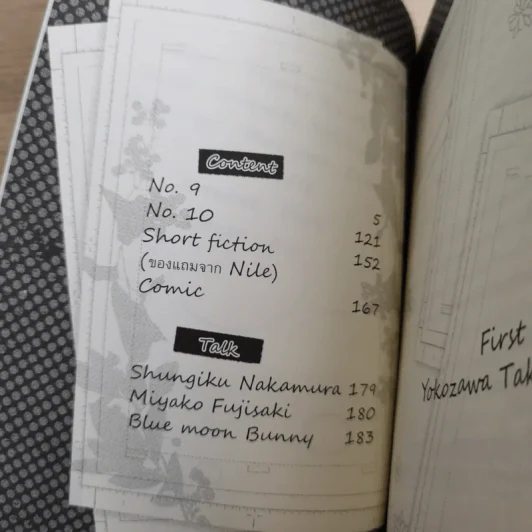 Content
No. 9 5
No. 10 121
Short fiction 152
(ของแถมจาก Nile)
Comic 167
Talk
Shungiku Nakamura 179
Miyako Fujisaki 180
Blue moon Bunny 183
First
Yokozawa